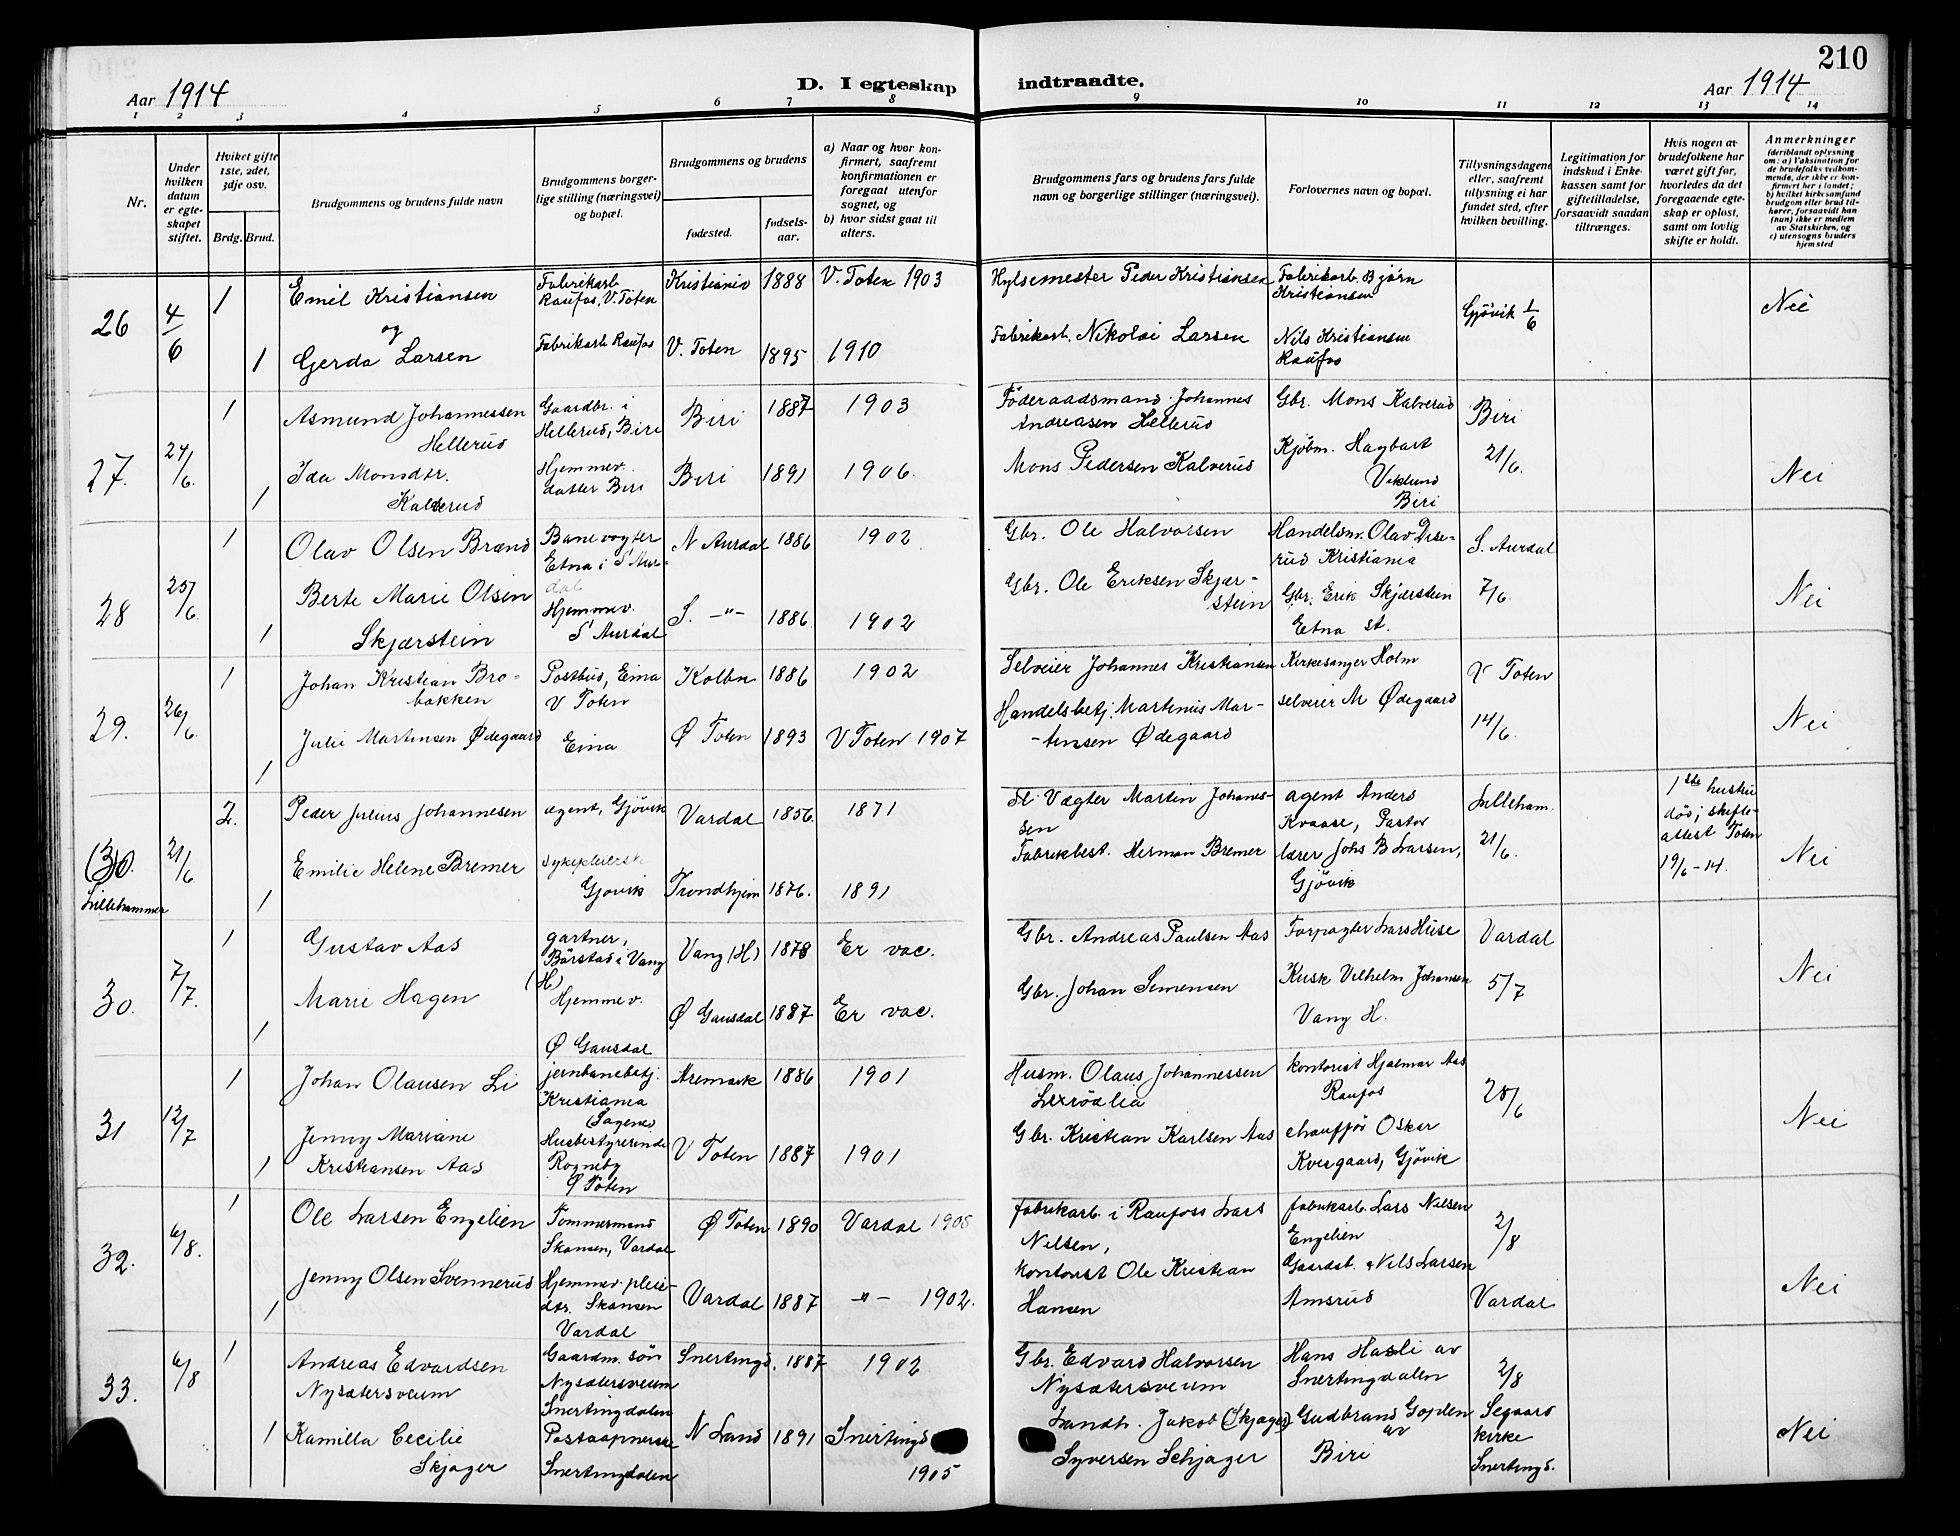 210
Aar 1914
D. I egteskap indtraadte.
Aar 1914
1 2 3 4 5 6 7 8 9 10 11 12 13 14
Nr.
Under hvilken datum er egteskapet stiftet.
Hvilket gifte 1ste, 2det, 3dje osv.
Brdg. Brud.
Brudgommens og brudens fulde navn
Brudgommens borgerlige stilling (næringsvei) og bopæl.
Brudgommens og brudens
fødested.
fødselsaar.
a) Naar og hvor konfirmert, saafremt konfirmationen er foregaat utenfor sognet, og
b) hvor sidst gaat til alters.
Brudgommens fars og brudens fars fulde navn og borgerlige stillinger (næringsvei).
Forlovernes navn og bopæl.
Tillysningsdagene eller, saafremt tillysning ei har fundet sted, efter hvilken bevilling.
Legitimation for indskud i Enkekassen samt for giftetilladelse, forsaavidt saadan tiltrænges.
Hvis nogen av brudefolkene har været gift før, hvorledes da det foregaaende egteskap er opløst, samt om lovlig skifte er holdt.
Anmerkninger
(deriblandt oplysning om: a) Vaksination for de brudefolks vedkommende, der ikke er konfirmert her i landet; b) hvilket kirkesamfund brudgom eller brud tilhører, forsaavidt han (hun) ikke er medlem av Statskirken, og c) utensogns bruders hjemsted
26 4/6 1 Emil Kristiansen Fabrikarb Raufos, V. Toten Kristiania 1888 V. Toten 1903 Hylsemester Peder Kristiansen Fabrikarb. Bjørn Kristiansen Gjøvik 1/6 Nei
og
1 Gerda Larsen Fabrikarb Raufos V. Toten 1895 1910 Fabrikarb. Nikolai Larsen Nils Kristiansen Raufos
27. 24/6. 1 Asmund Johannessen Hellerud Gaardbr. i Hellerud, Biri Biri 1887 1903 Føderaadsmand Johannes Andreasen Hellerud Gbr. Mons Kalverud Biri 21/6. Nei
1 Ida Monsdtr. Kalverud Hjemmev. datter Biri Biri 1891 1906. Mons Pedersen Kalverud Kjøbm. Hagbart Viklund Biri
28 25/6. 1 Olav Olsen Brænd Banevogter Etna i S Aurdal N Aurdal 1886 1902 Gbr. Ole Halvorsen Handelsm. Olav Diserud Kristiania S. Aurdal 7/6. Nei
1 Berte Marie Olsen Skjærstein Hjemmev. S Aurdal S. -"- 1886 1902 Gbr. Ole Eriksen Skjærstein Gbr. Erik Skjærstein Etna st.
29. 26/6. 1 Johan Kristian Brobakken Postbud, Eina V Toten Kolbu 1886 1902 Selveier Johannes Kristiansen Kirkesanger Holm V Toten 14/6. Nei
1 Julie Martinsen Ødegaard Eina Ø Toten 1893 V Toten 1907 Handelsbetj. Martinus Martinsen Ødegaard selveier M Ødegaard
(30). Lillehammer 21/6 2. Peder Julius Johannesen agent, Gjøvik Vardal 1856. 1871 Vægter Martin Johannesen agent Anders Kvaase, Pastor Lilleham. 21/6. 1ste hustru død; skifteattest Toten 19/6-14. Nei
1 Emilie Helene Bremer sykepleiersk Gjøvik Trondhjem 1876. 1891 Fabrikbest. Herman Bremer lærer Johs B Larsen, Gjøvik
30. 7/7. 1 Gustav Aas gartner, Børstad i Vang (H) Vang (H) 1878 Er vac. Gbr. Andreas Paulsen Aas Forpagter Lars Huse Vardal 5/7 Nei
1 Marie Hagen Hjemmev. Ø Gausdal Ø Gausdal 1887 Er vac. Gbr. Johan Simensen Kusk Vilhelm Johansen Vang H.
31 12/7 1 Johan Olausen Li jernbanebetj. Kristiania (Sagene) Aremark 1886 1901 Husm. Olaus Johannessen kontorist Hjalmar Aas Raufos 28/6 Nei
1 Jenny Mariane Kristiansen Aas Husbestyrerinde Rogneby Ø Toten V Toten 1887 1901 Gbr. Kristian Karlsen Aas chauffør Oskar Kvergaard, Gjøvik
32. 6/8. 1 Ole Larsen Engelien Tømmermand Skansen, Vardal Ø Toten 1890 Vardal 1905 fabrikarb. i Raufoss Lars Nilsen, fabrikarb. Lars Nilsen Engelien 2/8 Vardal Nei
1 Jenny Olsen Svennerud Hjemmev. pleiedtr. Skansen Vardal Vardal 1887 -"- 1902. kontorist Ole Kristian Hansen Gaardbt. Nils Larsen Amsrud
33. 6/8 1 Andreas Edvardsen Nysætersveum Gaardm. søn Nysætersveum Snertingdalen Snertingd. 1887 1902 Gbr. Edvard Halvorsen Nysætersveum Hans Hasli av Snertingdalen 2/8 Segaard kirke Snertingd. Nei
1 Kamilla Cecilie Skjager Postaapnerske Snertingdalen N Land 1891 Snertingd 1905 Landh. Jakob (Skjager) Syversen Schjager Gudbrand Goplen av Biri